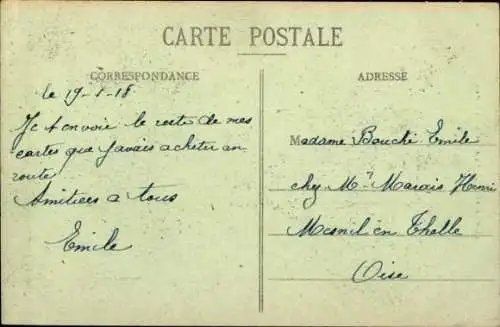 CARTE POSTALE
CORRESPONDANCE
le 19-1-18
Je t envoie le reste de mes
cartes que javais acheter an
route
Amitiees a tous
Emile
ADRESSE
Madame Bouché Emile
chez Mr Marais Henri
Mesnil en Thelle
Oise